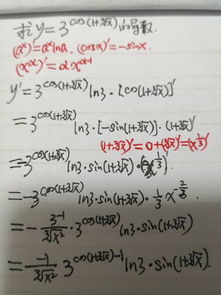 求 y=3^{cos(1+∛x)} 的导数.
(a^x)'=a^x lna, (cosx)'=-sinx.
(x^α)'=αx^{α-1}
y'=3^{cos(1+∛x)} ln3·[cos(1+∛x)]'
=3^{cos(1+∛x)} ln3·[-sin(1+∛x)]·(1+∛x)'
(1+∛x)'=0+(∛x)'=(x^{1/3})'
=-3^{cos(1+∛x)} ln3·sin(1+∛x)·(x^{1/3})'
=-3^{cos(1+∛x)} ln3·sin(1+∛x)·1/3 x^{-2/3}
=-3^{-1}/∛x²·3^{cos(1+∛x)} ln3·sin(1+∛x)
=-1/∛x² 3^{cos(1+∛x)-1} ln3·sin(1+∛x).